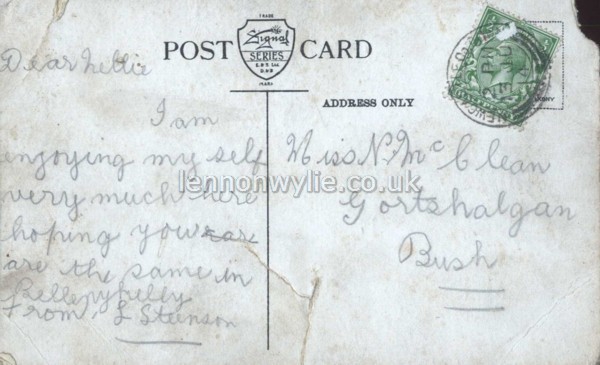 TRADE
Signal
SERIES
E & S Ltd.
DUB
MARK
POST CARD
ADDRESS ONLY
Dear Nellie
I am
enjoying my self
very much here
hoping you are
are the same in
From, L Steenson
Miss N. McClean
Gortshalgan
Bush
lennonwylie.co.uk